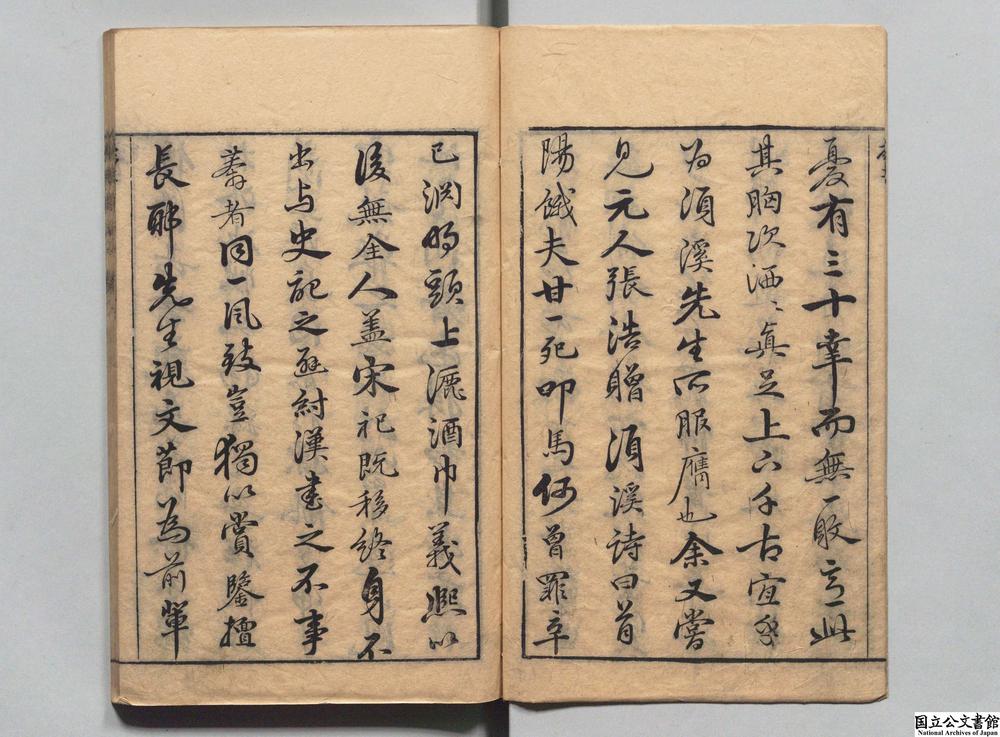 憂有三十幸而無一敗之言此
其胸次洒〻真足上下千古宜乎
为湏溪先生所服膺也余又嘗
見元人張浩贈湏溪詩曰首
陽餓夫甘一死叩馬何曾罪辛
已淵明頭上漉酒巾義熙以
後無全人盖宋祀既移終身不
出与史記之逊紂漢書之不事
莽者同一風致豈獨以賞鑒擅
長耶先生視文節為前輩
国立公文書館
National Archives of Japan